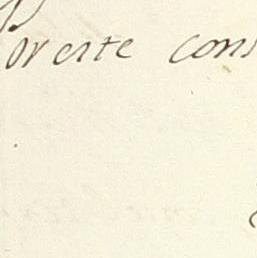 oreste cons